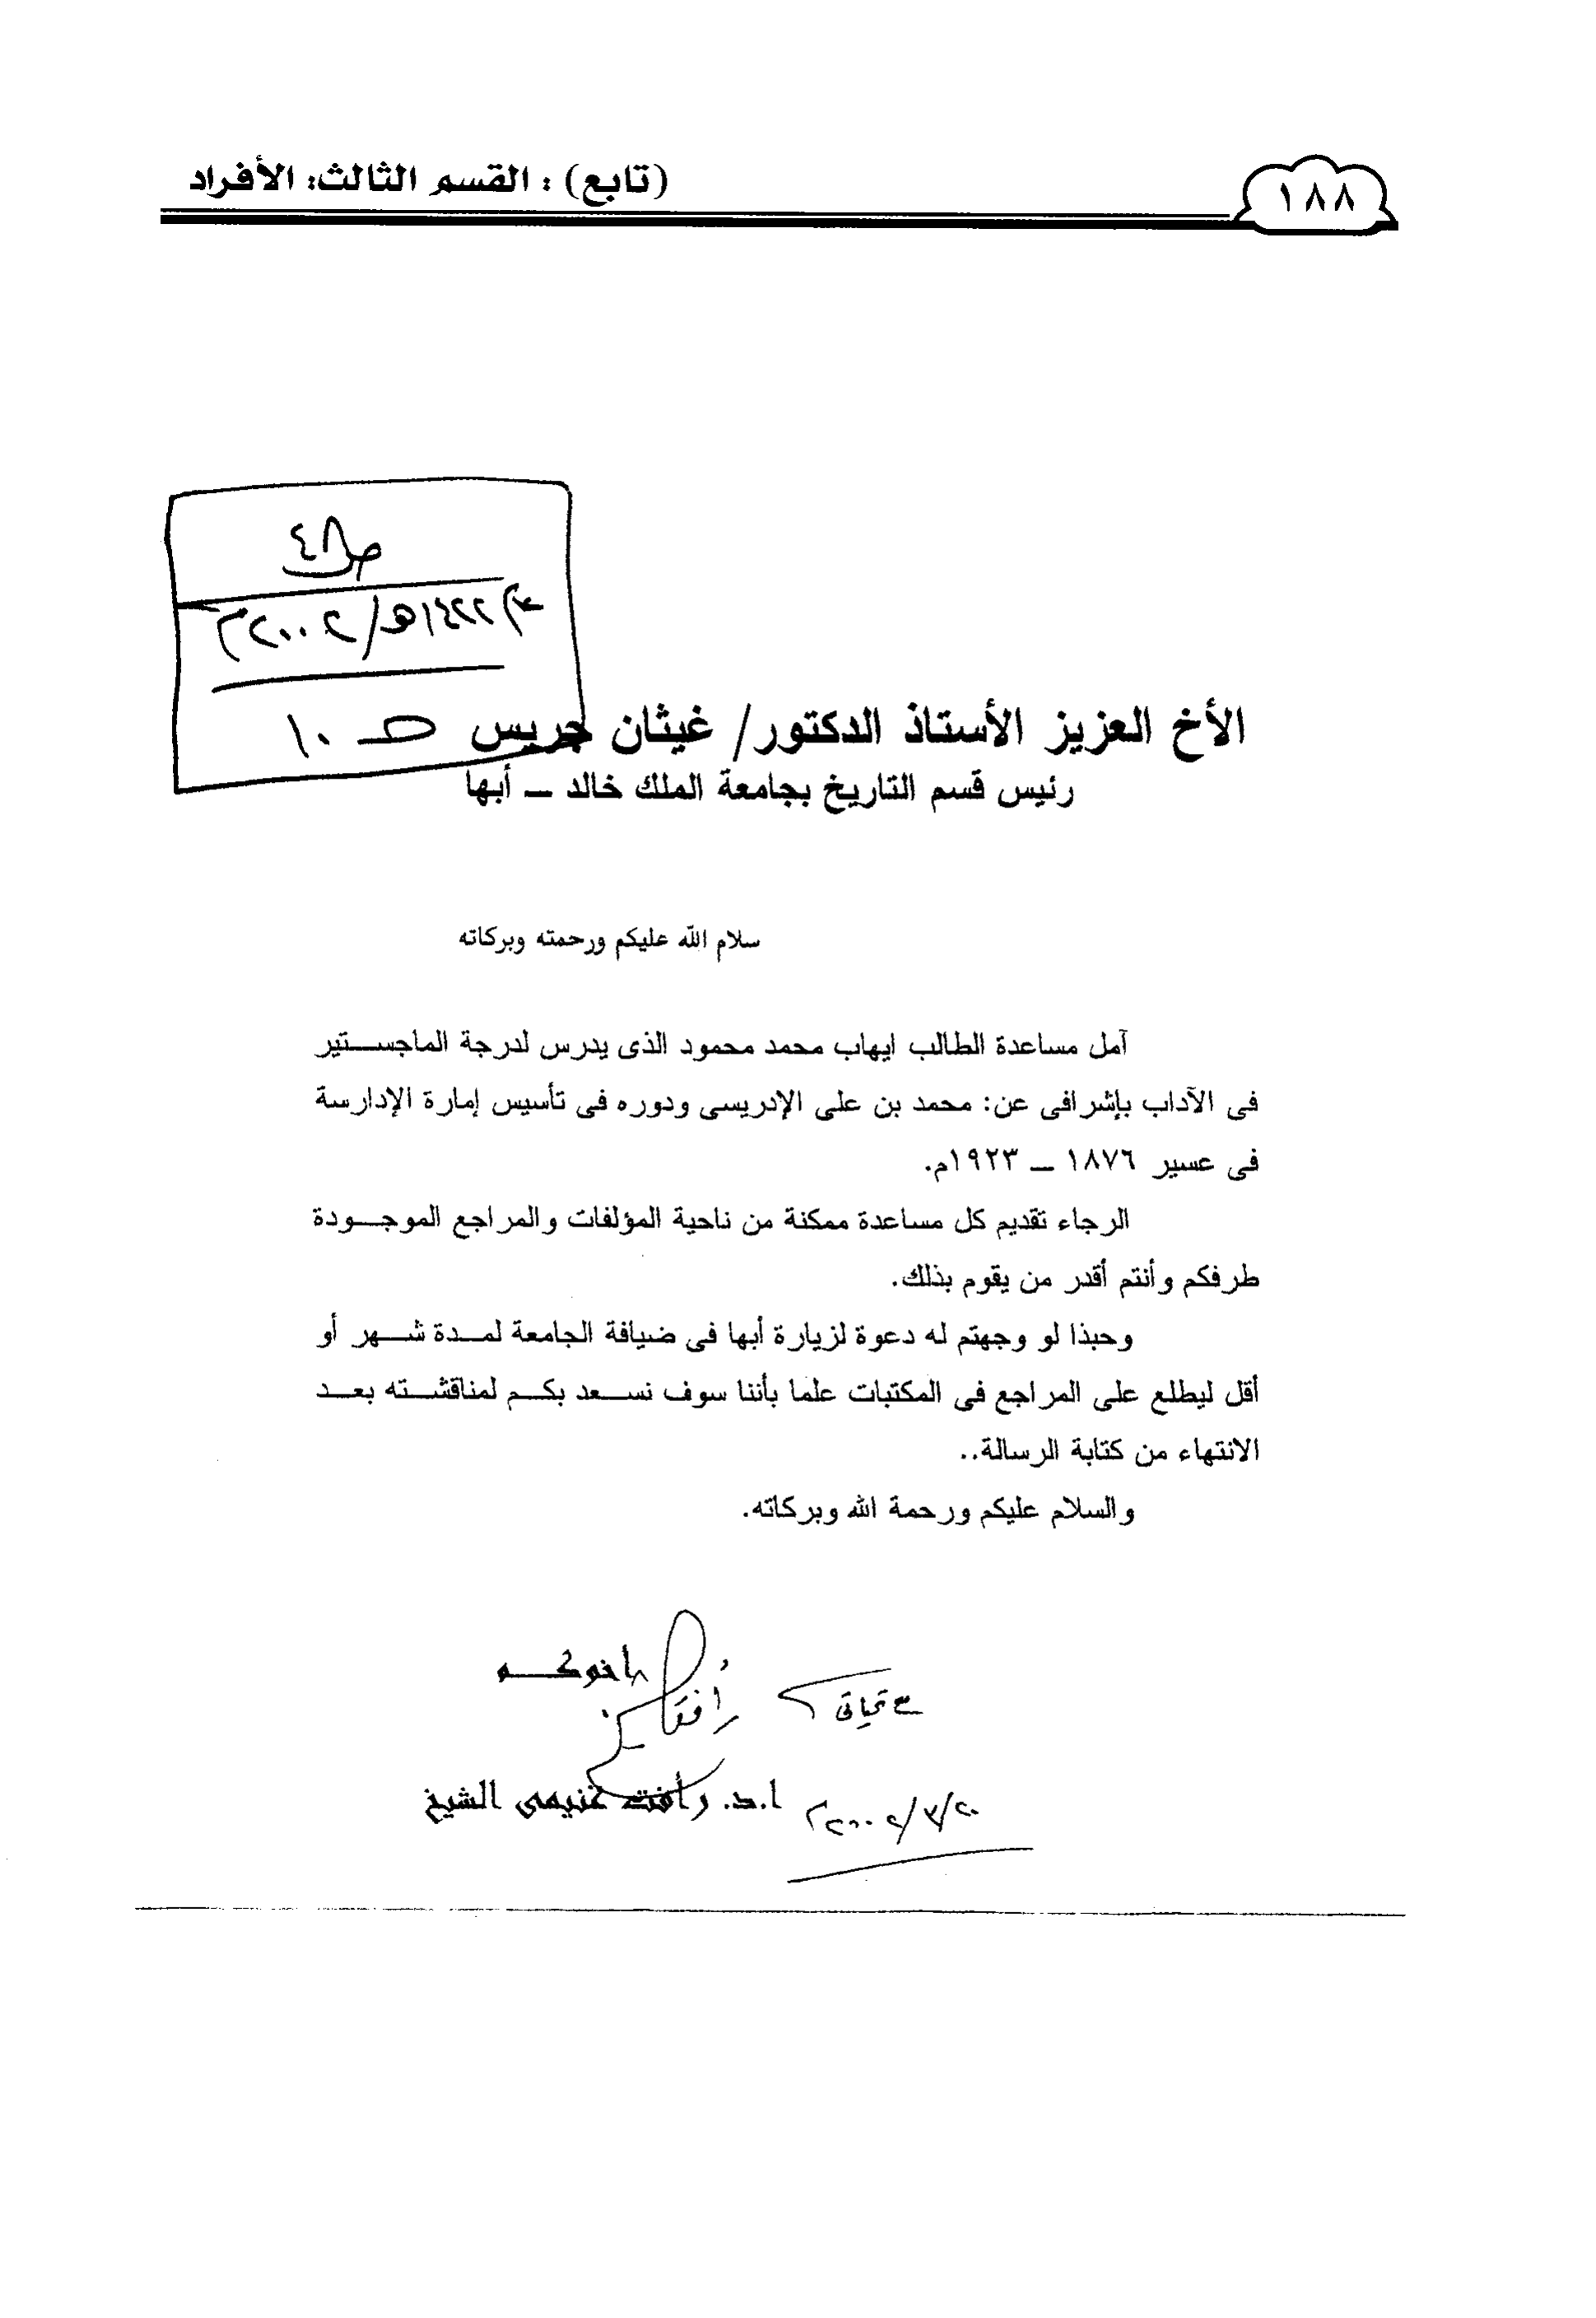 ١٨٨
(تابع) : القسم الثالث: الأفراد
١٤٢٢هـ/٢٠٠٢م
الأخ العزيز الأستاذ الدكتور/ غيثان جريس
رئيس قسم التاريخ بجامعة الملك خالد ــ أبها
سلام الله عليكم ورحمته وبركاته
آمل مساعدة الطالب ايهاب محمد محمود الذى يدرس لدرجة الماجستير
فى الآداب بإشرافى عن: محمد بن على الإدريسى ودوره فى تأسيس إمارة الإدارسة
فى عسير ١٨٧٦ ــ ١٩٢٣م.
الرجاء تقديم كل مساعدة ممكنة من ناحية المؤلفات والمراجع الموجودة
طرفكم وأنتم أقدر من يقوم بذلك.
وحبذا لو وجهتم له دعوة لزيارة أبها فى ضيافة الجامعة لمدة شهر أو
أقل ليطلع على المراجع فى المكتبات علما بأننا سوف نسعد بكم لمناقشته بعد
الانتهاء من كتابة الرسالة..
والسلام عليكم ورحمة الله وبركاته.
اخوكم
مع تحياتى
ا.د. رأفت غنيمى الشيخ
٢٠/٣/٢٠٠٢م